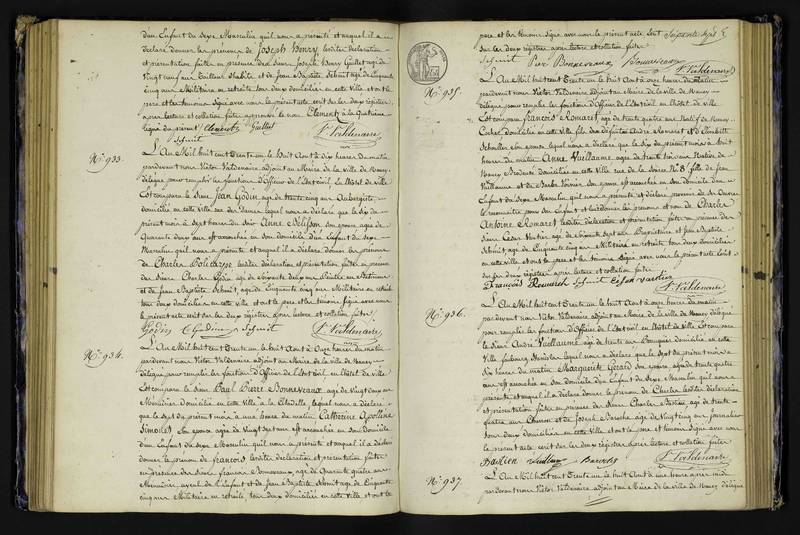 d'un Enfant du Sexe Masculin qu'il nous a présenté et auquel il a
déclaré donner les prénoms de Joseph Henry, lesdites déclaration
et présentation faites en présence des Sieurs Joseph Henry Guillet agé de
Vingt neuf ans et de Jean Baptiste Schmit agé de Cinquante
cinq ans Militaire en retraite tous deux domiciliés en cette Ville et ont les
père et témoins signé avec nous le présent acte écrit sur les deux registres
après lecture et collation faites approuvé le mot Clementz à la quatrième
ligne du présent Clementz Guillet
Schmit V. Valdenaire
N.° 933.
L'An Mil huit cent Trente un le huit Aout à dix heures du matin
pardevant nous Victor Valdenaire adjoint au Maire de la ville de Nancy
délégué pour remplir les fonctions d'Officier de l'état civil, en l'hôtel de ville
Est comparu le Sieur Jean Godin agé de trente cinq ans Aubergiste
domicilié en cette ville lequel nous a déclaré que le six du
présent mois à sept heures du soir Anne Pelisson son épouse agée de
Quarante deux ans est accouchée en son domicile d'un Enfant du sexe
Masculin qu'il nous a présenté et auquel il a déclaré donner les prénoms
de Charles lesdites déclaration et présentation faites en présence
des Sieurs Charles Godin agé de Soixante deux ans
et de Jean Baptiste Schmit, agé de Cinquante cinq ans Militaire en retraite
tous deux domiciliés en cette ville et ont le père et les témoins signé avec nous
le présent acte écrit sur les deux registres après lecture et collation faites
Godin C Godin Schmit V. Valdenaire
N.° 934.
L'An Mil huit cent Trente un le huit Aout à Onze heures du matin
pardevant nous Victor Valdenaire adjoint au Maire de la ville de Nancy
délégué pour remplir les fonctions d'Officier de l'état civil, en l'hôtel de ville
Est comparu le Sieur Paul Pierre Bonnevaux agé de Vingt deux ans
Menuisier domicilié en cette ville à la Citadelle, lequel nous a déclaré
que le sept du présent mois à une heure du matin Catherine Apolline
Simonet son épouse agée de Vingt Sept ans est accouchée en son domicile
d'un Enfant du Sexe Masculin qu'il nous a présenté et auquel il a déclaré
donner le prénom de François lesdites déclaration et présentation faites
en présence des Sieurs François Bonnevaux, agé de Quarante quatre ans
Menuisier, ayeul de l'Enfant et de Jean Baptiste Schmit agé de Cinquante
cinq ans Militaire en retraite, tous deux domiciliés en cette ville et ont le
père et les témoins signé avec nous le présent acte écrit
sur les deux registres après lecture et collation faites
Schmit Bonnevaux Bonnevaux
V. Valdenaire
N.° 935.
L'An Mil huit cent Trente un le huit Aout à onze heures du matin
pardevant nous Victor Valdenaire adjoint au Maire de la Ville de Nancy
délégué pour remplir les fonctions d'Officier de l'état civil en l'hôtel de ville
Est comparu François Romaret agé de trente quatre ans Natif de Nancy
Cocher domicilié en cette ville fils des défunts André Romaret et d'Elisabeth
son épouse lequel nous a déclaré que le six du présent mois à huit
heures du matin Anne Vuillaume agée de trente trois ans Native de
Nancy domiciliée en cette Ville rue de la N.° 8 fille de Jean
Vuillaume et de Barbe son épouse est accouchée en son domicile d'un
Enfant du Sexe Masculin qu'il nous a présenté et déclaré provenir de ses œuvres
le reconnaître pour son Enfant et lui donner les prénoms et nom de Charles
Antoine Romaret lesdites déclaration et présentation faites en présence des
Sieurs agé de Soixante sept ans Propriétaire et Jean Baptiste
Schmit, agé de Cinquante cinq ans Militaire en retraite tous deux domiciliés
en cette ville et ont le père et les témoins signé avec nous le présent acte écrit
sur les deux registres après lecture et collation faites
François Romaret Schmit
V. Valdenaire
N.° 936.
L'An Mil huit cent Trente un le huit Aout à onze heures du matin
pardevant nous Victor Valdenaire adjoint au Maire de la ville de Nancy délégué
pour remplir les fonctions d'Officier de l'état civil en l'hôtel de ville Est comparu
le Sieur André Vuillaume agé de trente ans domicilié en cette
Ville faubourg Stanislas lequel nous a déclaré que le sept du présent mois à
Six heures du matin Marguerite Gérard son épouse, agée de trente quatre
ans est accouchée en son domicile d'un Enfant du Sexe Masculin qu'il nous a
présenté et auquel il a déclaré donner le prénom de Charles lesdites déclaration
et présentation faites en présence des Sieurs Charles Bastien agé de trente
quatre ans Charron et de Joseph agé de Vingt cinq ans Journalier
tous deux domiciliés en cette ville et ont le père et les témoins signé avec nous
le présent acte écrit sur les deux registres après lecture et collation faites
Bastien V. Valdenaire
N.° 937.
L'An Mil huit cent Trente un le huit Aout à une heure après midi
pardevant nous Victor Valdenaire adjoint au Maire de la ville de Nancy délégué